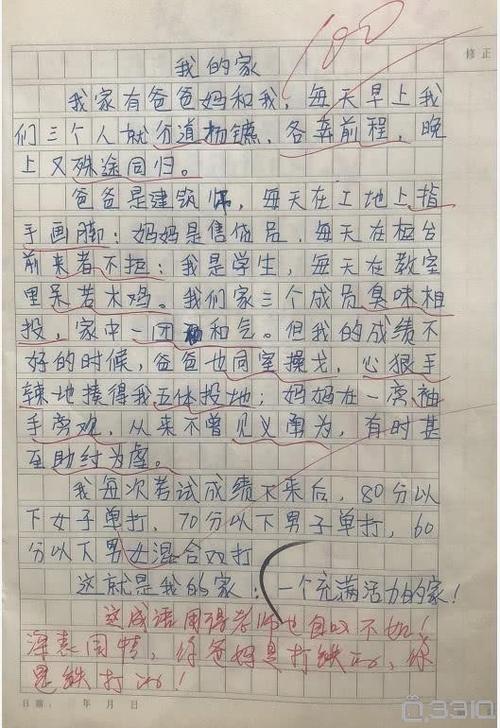 100
修正
我的家
我家有爸爸妈和我，每天早上我
们三个人就分道扬镳，各奔前程，晚
上又殊途同归。
爸爸是建筑师，每天在工地上指
手画脚；妈妈是售货员，每天在柜台
前来者不拒；我是学生，每天在教室
里呆若木鸡。我们家三个成员臭味相
投，家中一团和气。但我的成绩不
好的时候，爸爸也同室操戈，心狠手
辣地揍得我五体投地；妈妈在一离袖
手旁观，从来不曾见义勇为，有时甚
至助纣为虐。
我每次考试成绩下来后，80分以
下女子单打，70分以下男子单打，60
分以下男女混合双打
这就是我的家：一个充满活力的家！
这成语用得老师也自叹不如！
深表同情，你爸妈是打铁的，你
是铁打的！
日期： 年 月 日
3310